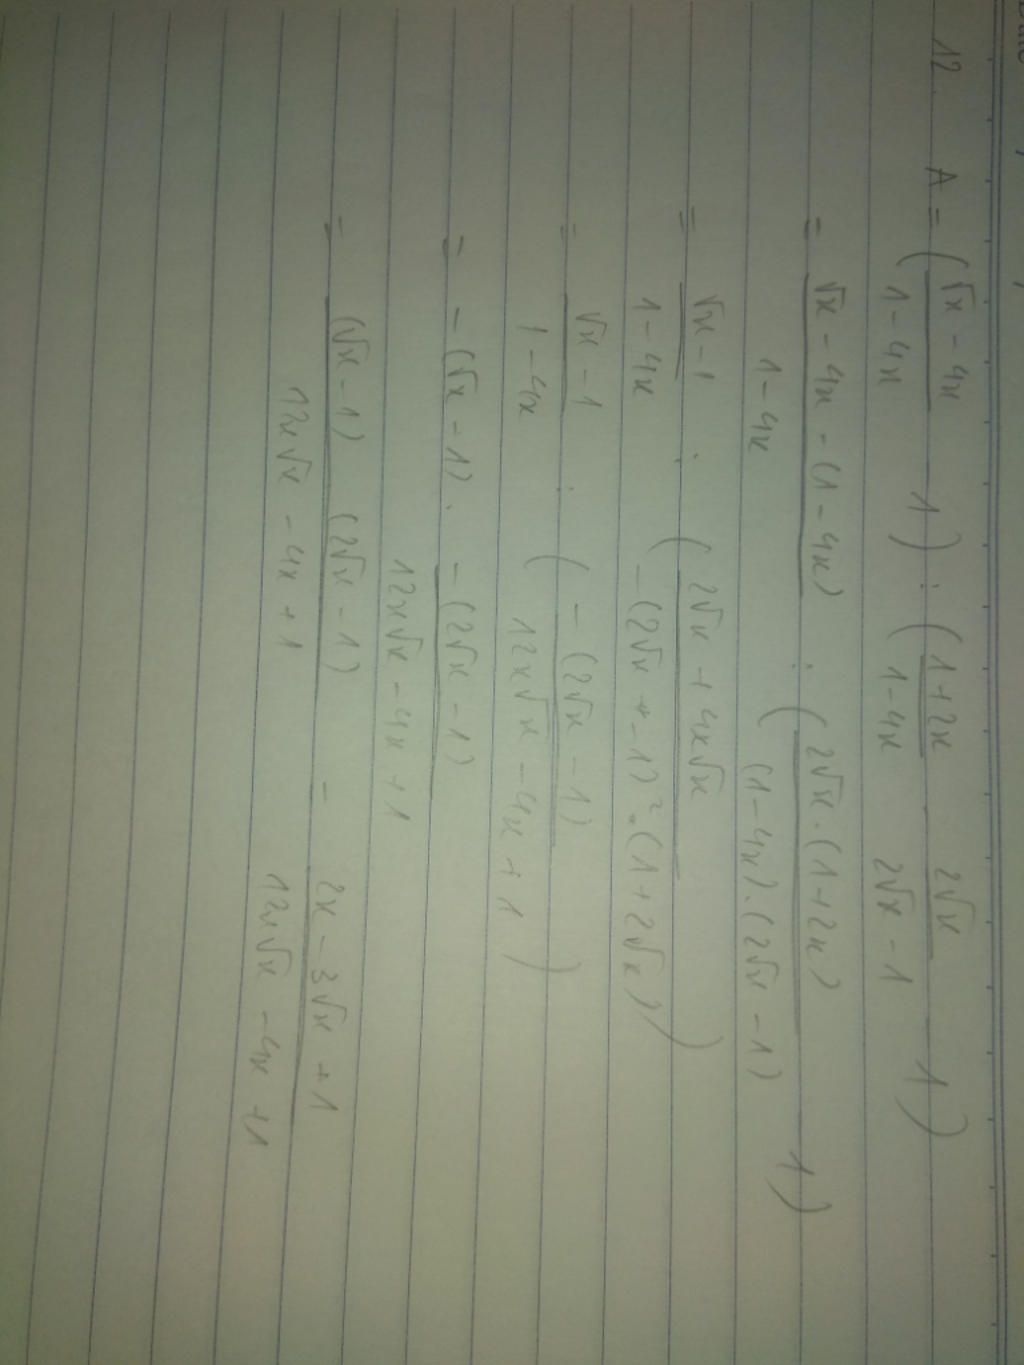 12. A = (√x - 4x / 1 - 4x 1) : (1 + 2x / 1 - 4x 2√x / 2√x - 1 1)
= √x - 4x - (1 - 4x) / 1 - 4x : (2√x . (1 + 2x) / (1 - 4x) . (2√x - 1) 1)
= √x - 1 / 1 - 4x : (2√x + 4x√x / -(2√x + -1)² . (1 + 2√x))
= √x - 1 / 1 - 4x : (-(2√x - 1) / 12x√x - 4x + 1)
= -(√x - 1) . -(2√x - 1) / 12x√x - 4x + 1
= (√x - 1) (2√x - 1) / 12x√x - 4x + 1 = 2x - 3√x + 1 / 12x√x - 4x + 1